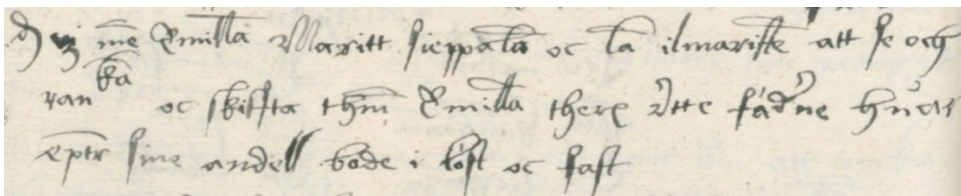 mē Emillā Maritt sieppalā oc lā ilmariste att se och
ranka oc skiffta thm̄ Emillā there rätte fäderne huar
epter sine andell både i löst oc fast